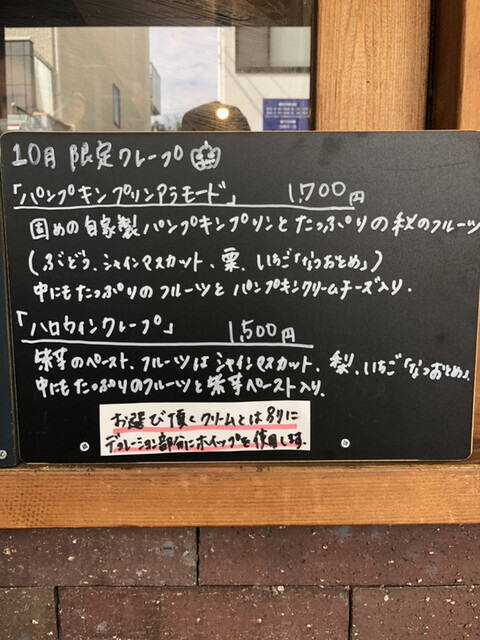 10月 限定クレープ
「パンプキンプリンアラモード」 1,700円
固めの自家製パンプキンプリンとたっぷりの秋のフルーツ
(ぶどう、シャインマスカット、栗、いちご「なつおとめ」)
中にもたっぷりのフルーツとパンプキンクリームチーズ入り.
「ハロウィンクレープ」 1,500円
紫芋のペースト、フルーツはシャインマスカット、梨、いちご「なつおとめ」.
中にもたっぷりのフルーツと紫芋ペースト入り.
お選び頂くクリームとは別に
デコレーション部分にホイップを使用します.